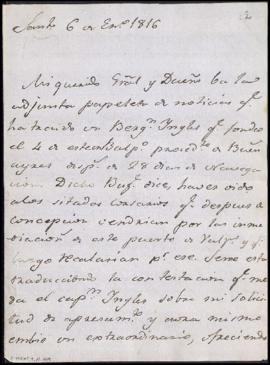 Santº 6 de Enº 1816
Mi querido Gral y Dueño ba la
adjunta papeleta de noticias qe
ha traido un Bergn Ingles qe fondeo
el 4 de este en Valpº procdte de Buenˢ
ayres despˢ de 28 dias de Navega
cion. Dicho Buqe dice, haver oido
a los citados corsarios qe despues a
concepcion vendrian por las inme
diaciones de este puerto de Valpº y
luego recalarian pr ese. Se me esta
traduciendo la contestacion qe me
da el capn Ingles sobre mi solici
tud de apresamto y aora mismo
embio un extraordinario, ofreciendo